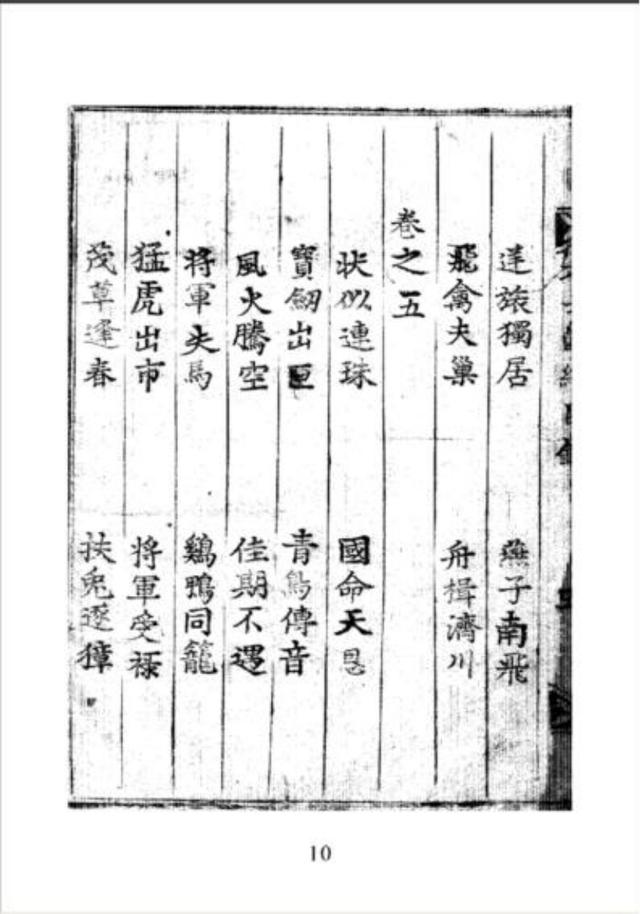 逹旅獨居 燕子南飛
飛禽夫巢 舟楫濟川
卷之五
狀似連珠 國命天恩
寶劒出匣 青鳥傳音
風火騰空 佳期不遇
將軍失馬 鷄鴨同籠
猛虎出市 將軍受禄
茂草逢春 扶兎逐獐
10